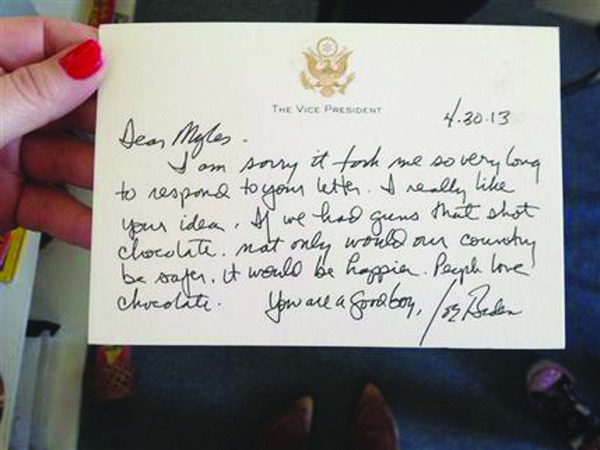 THE VICE PRESIDENT
4.30.13
Dear Myles.
I am sorry it took me so very long
to respond to your letter. I really like
your idea. If we had guns that shot
chocolate. not only would our country
be safer. it would be happier. People love
chocolate. You are a good boy, Joe Biden